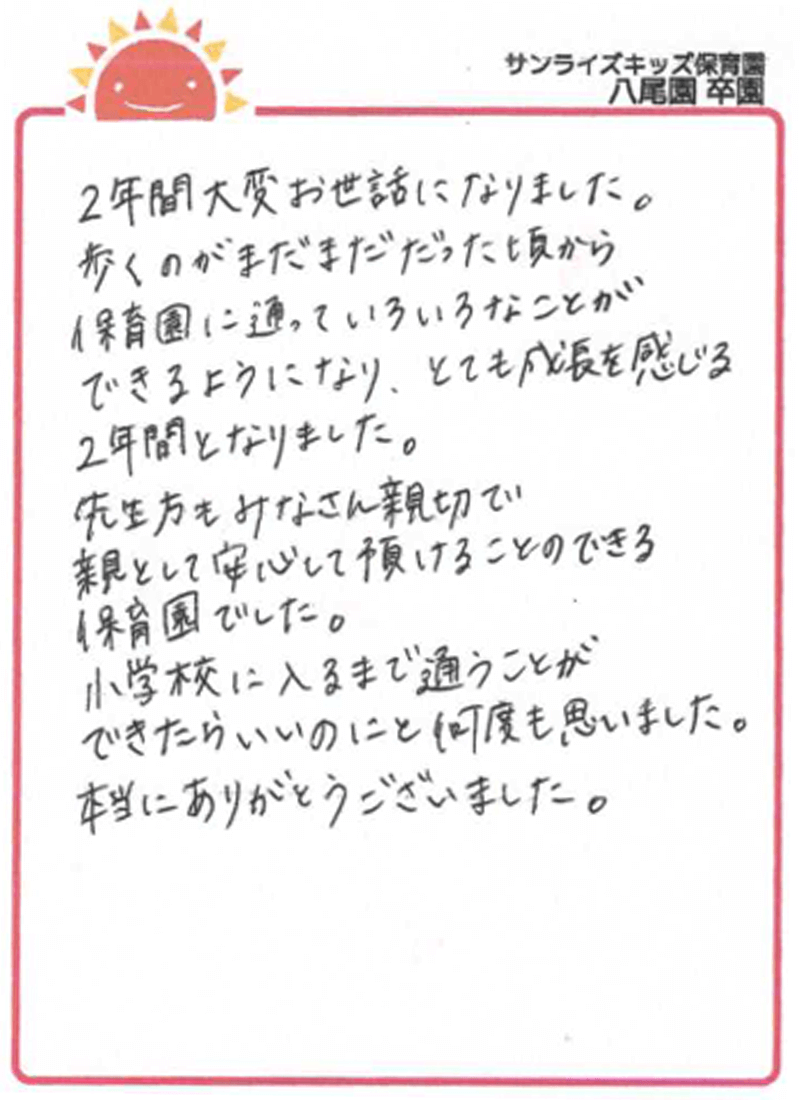 サンライズキッズ保育園
八尾園 卒園
2年間大変お世話になりました。
歩くのがまだまだだった頃から
保育園に通っていろいろなことが
できるようになり、とても成長を感じる
2年間となりました。
先生方もみなさん親切で
親として安心して預けることのできる
保育園でした。
小学校に入るまで通うことが
できたらいいのにと何度も思いました。
本当にありがとうございました。